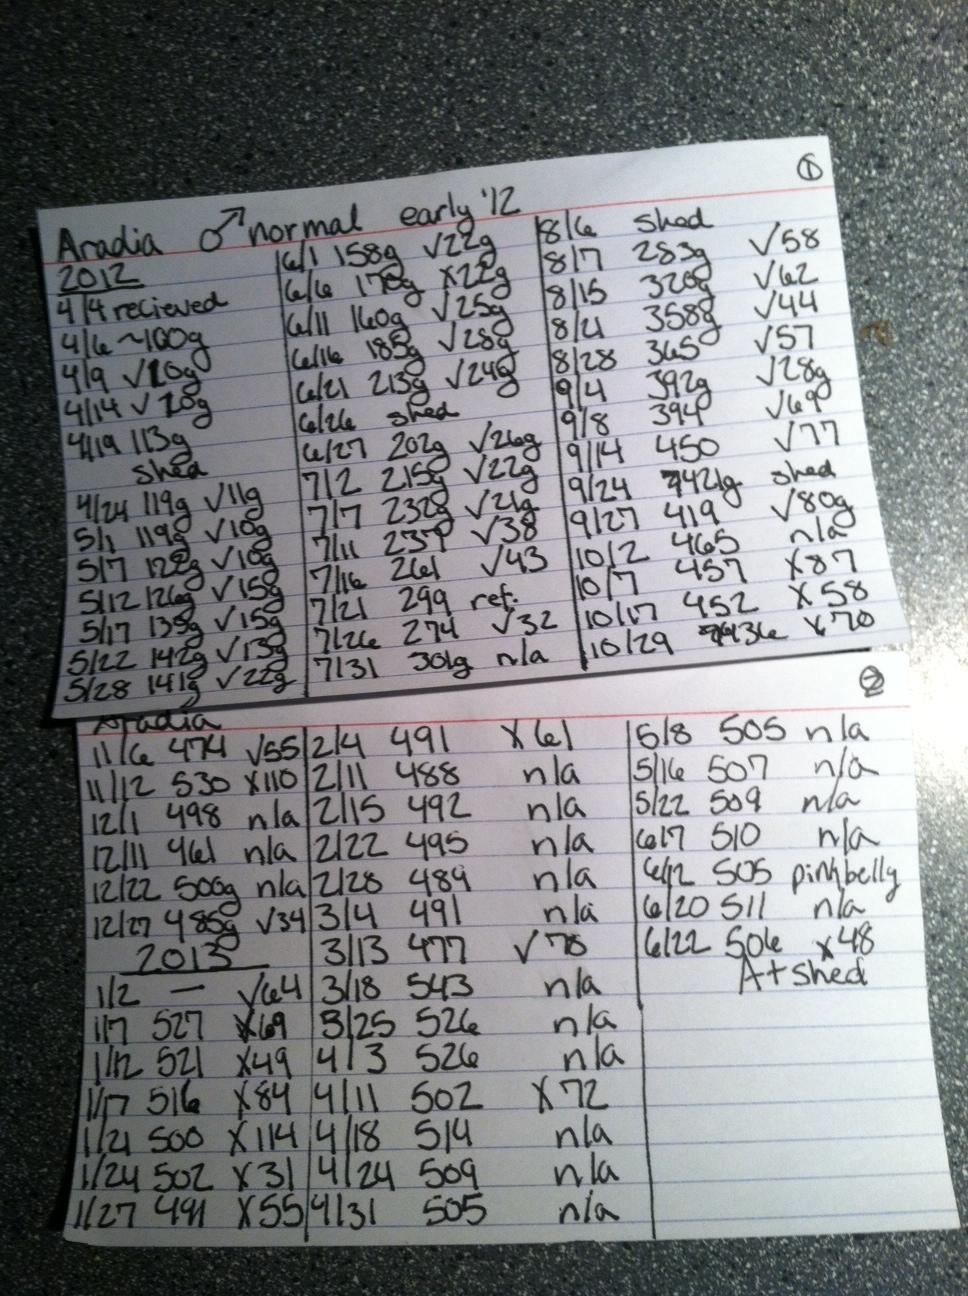 ①
Aradia ♂ normal early '12
2012
4/4 recieved
4/6 ~100g
4/9 √10g
4/14 √10g
4/19 113g
shed
4/24 119g √11g
5/1 119g √10g
5/7 122g √10g
5/12 126g √15g
5/17 135g √15g
5/22 142g √13g
5/28 141g √22g
6/1 158g √22g
6/6 170g X22g
6/11 160g √25g
6/16 185g √28g
6/21 213g √24g
6/26 shed
6/27 202g √26g
7/2 215g √22g
7/7 232g √21g
7/11 237 √38
7/16 261 √43
7/21 299 ref.
7/26 274 √32
7/31 301g n/a
8/6 shed
8/7 283g √58
8/15 320g √62
8/21 358g √44
8/28 365 √57
9/4 392g √28g
9/8 394 √69
9/14 450 √77
9/24 421g shed
9/27 419 √80g
10/2 465 n/a
10/7 457 X87
10/17 452 X58
10/29 436 X70
②
Aradia
11/6 474 √55
11/12 530 X110
12/1 498 n/a
12/11 461 n/a
12/22 500g n/a
12/27 485g √34
2013
1/2 — √64
1/7 527 X69
1/12 521 X49
1/17 516 X84
1/21 500 X114
1/24 502 X31
1/27 491 X55
2/4 491 X61
2/11 488 n/a
2/15 492 n/a
2/22 495 n/a
2/28 489 n/a
3/4 491 n/a
3/13 477 √70
3/18 543 n/a
3/25 526 n/a
4/3 526 n/a
4/11 502 X72
4/18 514 n/a
4/24 509 n/a
4/31 505 n/a
5/8 505 n/a
5/16 507 n/a
5/22 509 n/a
6/7 510 n/a
6/12 505 pink belly
6/20 511 n/a
6/22 506 X48
A+ shed